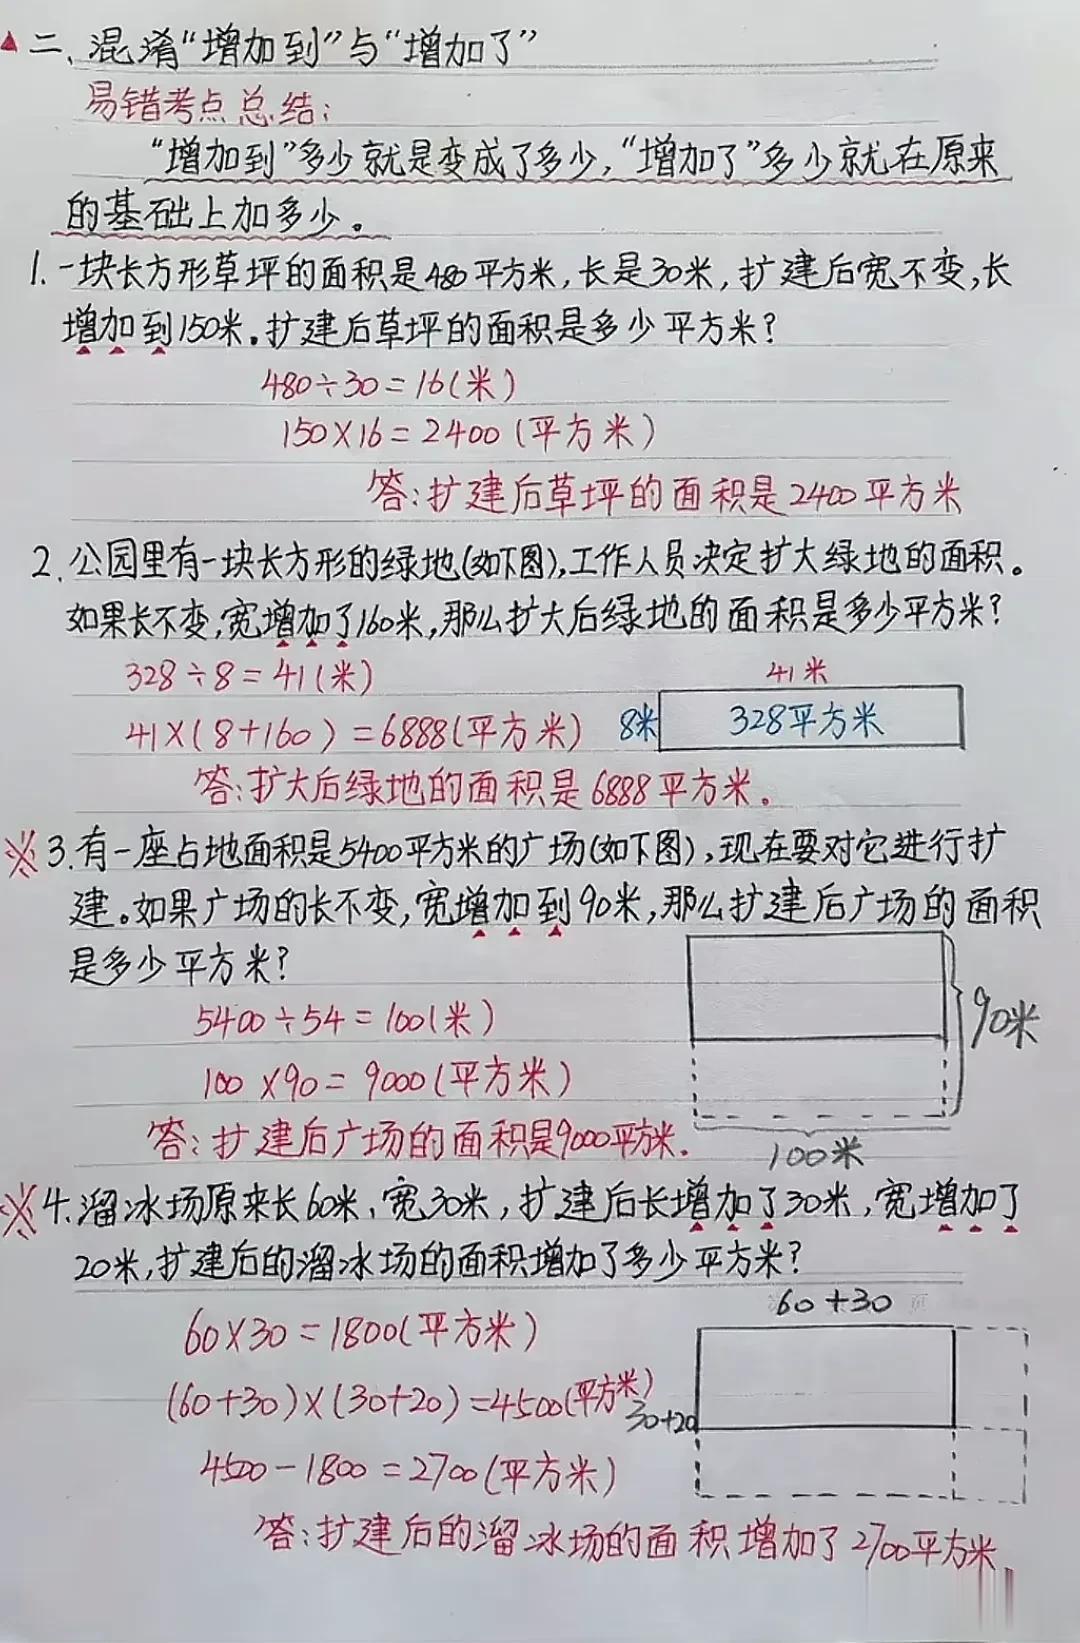 二、混淆“增加到”与“增加了”
易错考点总结：
“增加到”多少就是变成了多少，“增加了”多少就在原来
的基础上加多少。
1.一块长方形草坪的面积是480平方米，长是30米，扩建后宽不变，长
增加到150米。扩建后草坪的面积是多少平方米？
480÷30=16(米)
150×16=2400(平方米)
答：扩建后草坪的面积是2400平方米
2.公园里有一块长方形的绿地(如下图)，工作人员决定扩大绿地的面积。
如果长不变，宽增加了160米，那么扩大后绿地的面积是多少平方米？
328÷8=41(米)
41米
41×(8+160)=6888(平方米)
8米
328平方米
答：扩大后绿地的面积是6888平方米。
※3.有一座占地面积是5400平方米的广场(如下图)，现在要对它进行扩
建。如果广场的长不变，宽增加到90米，那么扩建后广场的面积
是多少平方米？
5400÷54=100(米)
90米
100×90=9000(平方米)
答：扩建后广场的面积是9000平方米.
100米
※4.溜冰场原来长60米、宽30米，扩建后长增加了30米，宽增加了
20米，扩建后的溜冰场的面积增加了多少平方米？
60+30
60×30=1800(平方米)
(60+30)×(30+20)=4500(平方米)
30+20
4500-1800=2700(平方米)
答：扩建后的溜冰场的面积增加了2700平方米